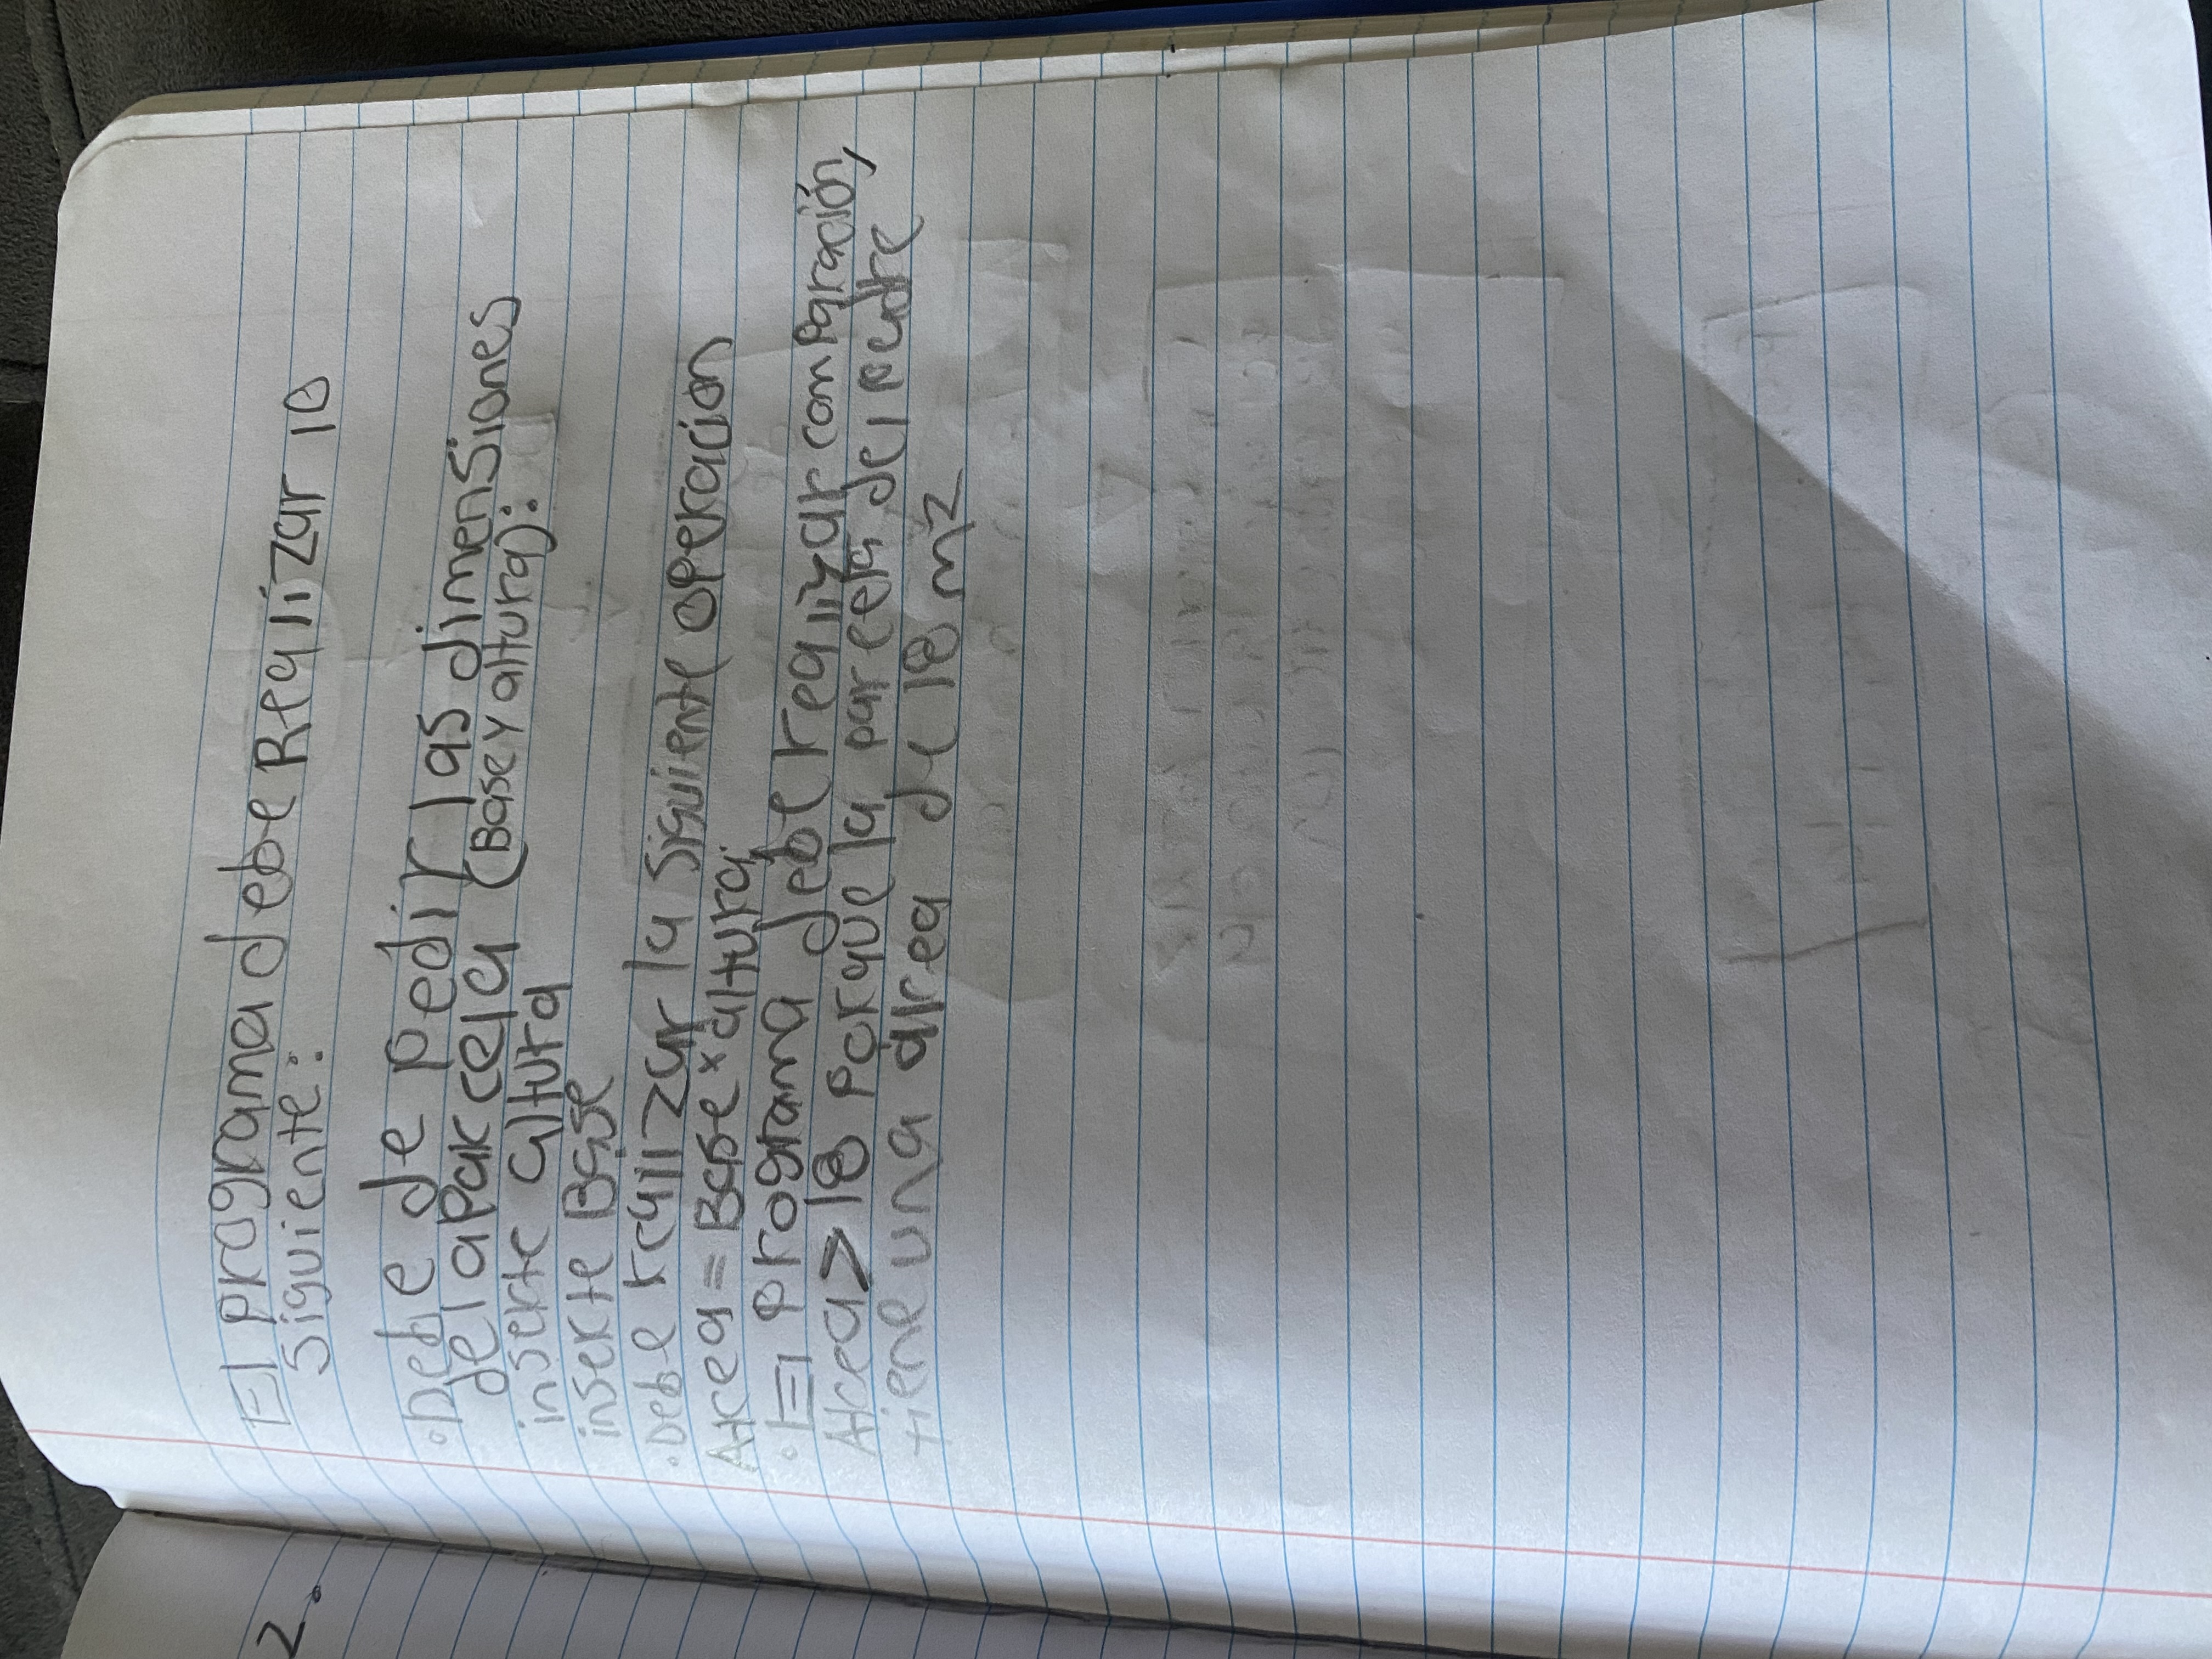 2.
El programa debe Realizar lo
siguiente:
• Debe de pedir las dimensiones
de la parcela (Base y altura):
inserte altura
inserte Base
• Debe realizar la siguiente operación
Area = Base * altura;
• El programa debe realizar comparación,
Area > 18 porque la parcela del padre
tiene una área de 18 m2